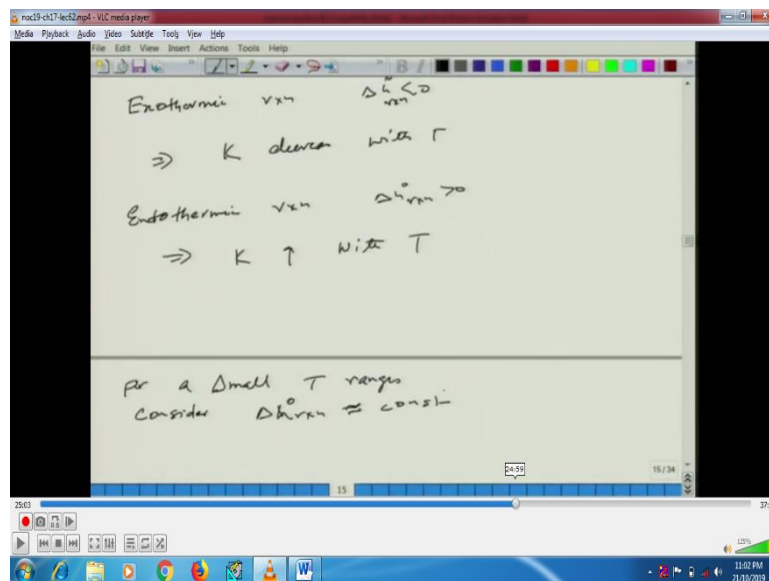 noc19-ch17-lec62.mp4 - VLC media player
Media Playback Audio Video Subtitle Tools View Help
File Edit View Insert Actions Tools Help
B I
Exothermic rxn Δh°rxn <0
⇒ K decreases with T
Endothermic rxn Δh°rxn >0
⇒ K ↑ with T
for a small T ranges
Consider Δh°rxn ≈ const
24:59
15/34
15
25:03
125%
11:02 PM
21/10/2019